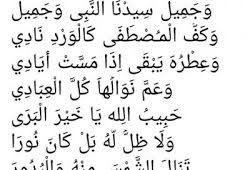 وَجَمِيلْ سِيدْنَا النَّبِى وَجَمِيلْ
وَكَفُّ الْمُصْطَفَى كَالْوَرْدِ نَادِي
وَعِطْرُهُ يَبْقَى إِذَا مَسَّتْ أَيَادِي
وَعَمَّ نَوَالُهَا كُلَّ الْعِبَادِي
حَبِيبُ اللهِ يَا خَيْرَ الْبَرَى
وَلَا ظِلُّ لَهُ بَلْ كَانَ نُورَا